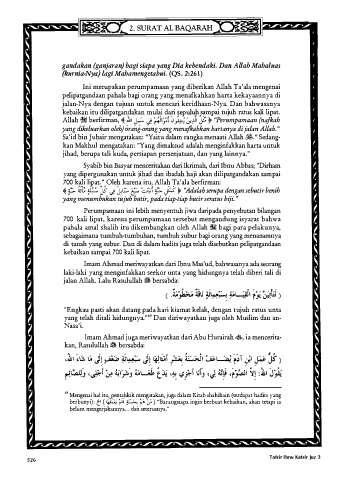 2. SURAT AL BAQARAH
gandakan (ganjaran) bagi siapa yang Dia kehendaki. Dan Allah Mahaluas
(kurnia-Nya) lagi Mahamengetahui. (QS. 2:261)
Ini merupakan perumpamaan yang diberikan Allah Ta'ala mengenai
pelipatgandaan pahala bagi orang yang menafkahkan harta kekayaannya di
jalan-Nya dengan tujuan untuk mencari keridhaan-Nya. Dan bahwasanya
kebaikan itu dilipatgandakan mulai dari sepuluh sampai tujuh ratus kali lipat.
Allah ﷻ berfirman, ﴿ مَّثَلُ الَّذِينَ يُنفِقُونَ أَمْوَالَهُمْ فِي سَبِيلِ اللهِ ﴾ "Perumpamaan (nafkah
yang dikeluarkan oleh) orang-orang yang menafkahkan hartanya di jalan Allah."
Sa'id bin Jubair mengatakan: "Yaitu dalam rangka mentaati Allah ﷻ." Sedang-
kan Makhul mengatakan: "Yang dimaksud adalah menginfakkan harta untuk
jihad, berupa tali kuda, persiapan persenjataan, dan yang lainnya."
Syabib bin Basyar menceritakan dari Ikrimah, dari Ibnu Abbas; "Dirham
yang dipergunakan untuk jihad dan ibadah haji akan dilipatgandakan sampai
700 kali lipat." Oleh karena itu, Allah Ta'ala berfirman:
﴿ كَمَثَلِ حَبَّةٍ أَنبَتَتْ سَبْعَ سَنَابِلَ فِي كُلِّ سُنبُلَةٍ مِّائَةُ حَبَّةٍ ﴾ "Adalah serupa dengan sebutir benih
yang menumbuhkan tujuh butir, pada tiap-tiap butir seratus biji."
Perumpamaan ini lebih menyentuh jiwa daripada penyebutan bilangan
700 kali lipat, karena perumpamaan tersebut mengandung isyarat bahwa
pahala amal shalih itu dikembangkan oleh Allah ﷻ bagi para pelakunya,
sebagaimana tumbuh-tumbuhan, tumbuh subur bagi orang yang menanamnya
di tanah yang subur. Dan di dalam hadits juga telah disebutkan pelipatgandaan
kebaikan sampai 700 kali lipat.
Imam Ahmad meriwayatkan dari Ibnu Mas'ud, bahwasanya ada seorang
laki-laki yang menginfakkan seekor unta yang hidungnya telah diberi tali di
jalan Allah. Lalu Rasulullah ﷺ bersabda:
( لَتَأْتِيَنَّ يَوْمَ الْقِيَامَةِ بِسَبْعِمِائَةِ نَاقَةٍ مَخْطُوْمَةٍ. )
"Engkau pasti akan datang pada hari kiamat kelak, dengan tujuh ratus unta
yang telah ditali hidungnya." Dan diriwayatkan juga oleh Muslim dan an-
Nasa'i.
Imam Ahmad juga meriwayatkan dari Abu Hurairah ؓ, ia mencerita-
kan, Rasulullah ﷺ bersabda:
( كُلُّ عَمَلِ ابْنِ آدَمَ يُضَاعَفُ الْحَسَنَةُ بِعَشْرِ أَمْثَالِهَا إِلَى سَبْعِمِائَةِ ضِعْفٍ إِلَى مَا شَاءَ اللهُ،
يَقُوْلُ اللهُ: إِلاَّ الصَّوْمَ، فَإِنَّهُ لِي، وَأَنَا أَجْزِي بِهِ، يَدَعُ طَعَامَهُ وَشَرَابَهُ مِنْ أَجْلِي، وَلِلصَّائِمِ
Mengenai hal itu, pentahkik mengatakan, juga dalam Kitab shahihain (terdapat hadits yang
berbunyi): "Barangsiapa ingin berbuat kebaikan, akan tetapi ia
belum mengerjakannya... dan seterusnya."
526
Tafsir Ibnu Katsir Juz 3